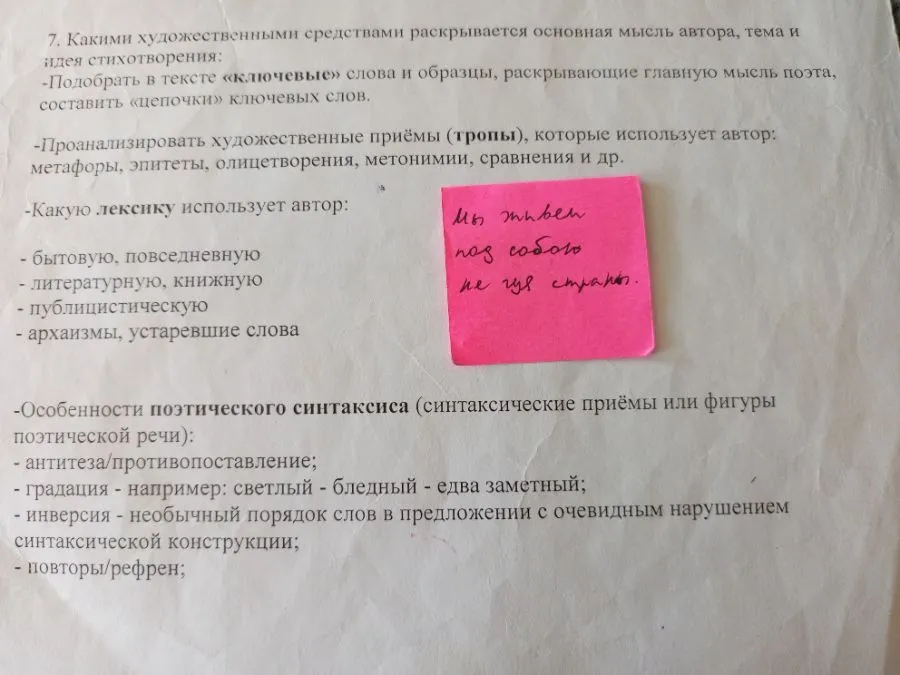 7. Какими художественными средствами раскрывается основная мысль автора, тема и
идея стихотворения:
-Подобрать в тексте «ключевые» слова и образцы, раскрывающие главную мысль поэта,
составить «цепочки» ключевых слов.
-Проанализировать художественные приёмы (тропы), которые использует автор:
метафоры, эпитеты, олицетворения, метонимии, сравнения и др.
-Какую лексику использует автор:
- бытовую, повседневную
- литературную, книжную
- публицистическую
- архаизмы, устаревшие слова
Мы живем
под собою
не чуя страны.
-Особенности поэтического синтаксиса (синтаксические приёмы или фигуры
поэтической речи):
- антитеза/противопоставление;
- градация - например: светлый - бледный - едва заметный;
- инверсия - необычный порядок слов в предложении с очевидным нарушением
синтаксической конструкции;
- повторы/рефрен;